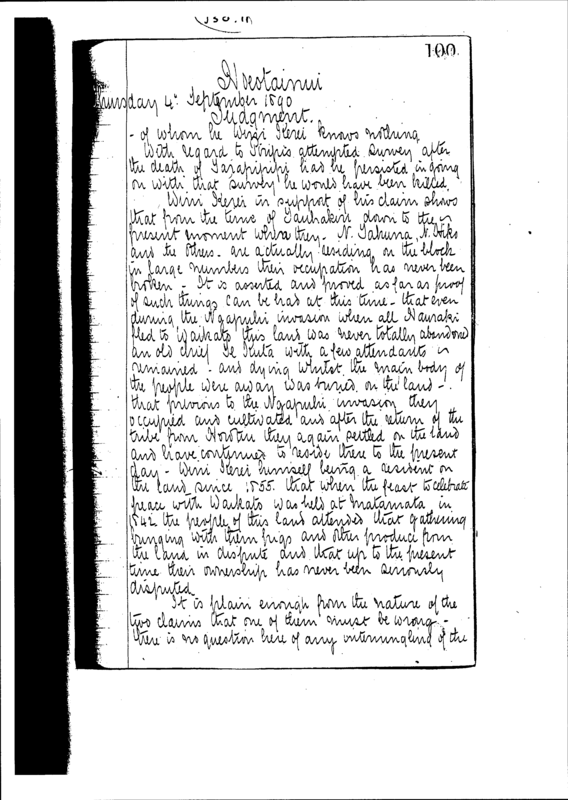 100.
Hoeotainui
Thursday 4th September 1890
Judgment.
- of whom he Wini Kerei knows nothing
With regard to attempted survey after
the death of had he persisted in going
on with that survey he would have been killed.
Wini Kerei in support of his claim shows
that from the time of down to the
present moment when they, N.
and the others - are actually residing on the block
in large numbers their occupation has never been
broken - It is asserted and proved as far as proof
of such things can be had at this time - that even
during the Ngapuhi invasion when all Hauraki
fled to Waikato this land was never totally abandoned
an old chief Te with a few attendants
remained - and dying whilst the main body of
the people were away was buried on the land -
that previous to the Ngapuhi invasion they
occupied and cultivated and after the return of the
tribe from Horotiu they again settled on the land
and have continued to reside there to the present
day - Wini Kerei himself being a resident on
the land since 1855. that when the feast to celebrate
peace with Waikato was held at Matamata in
1842 the people of this land attended that gathering
bringing with them pigs and other produce from
the land in dispute and that up to the present
time their ownership has never been seriously
disputed
It is plain enough from the nature of the
two claims that one of them must be wrong -
there is no question here of any intermingling of the